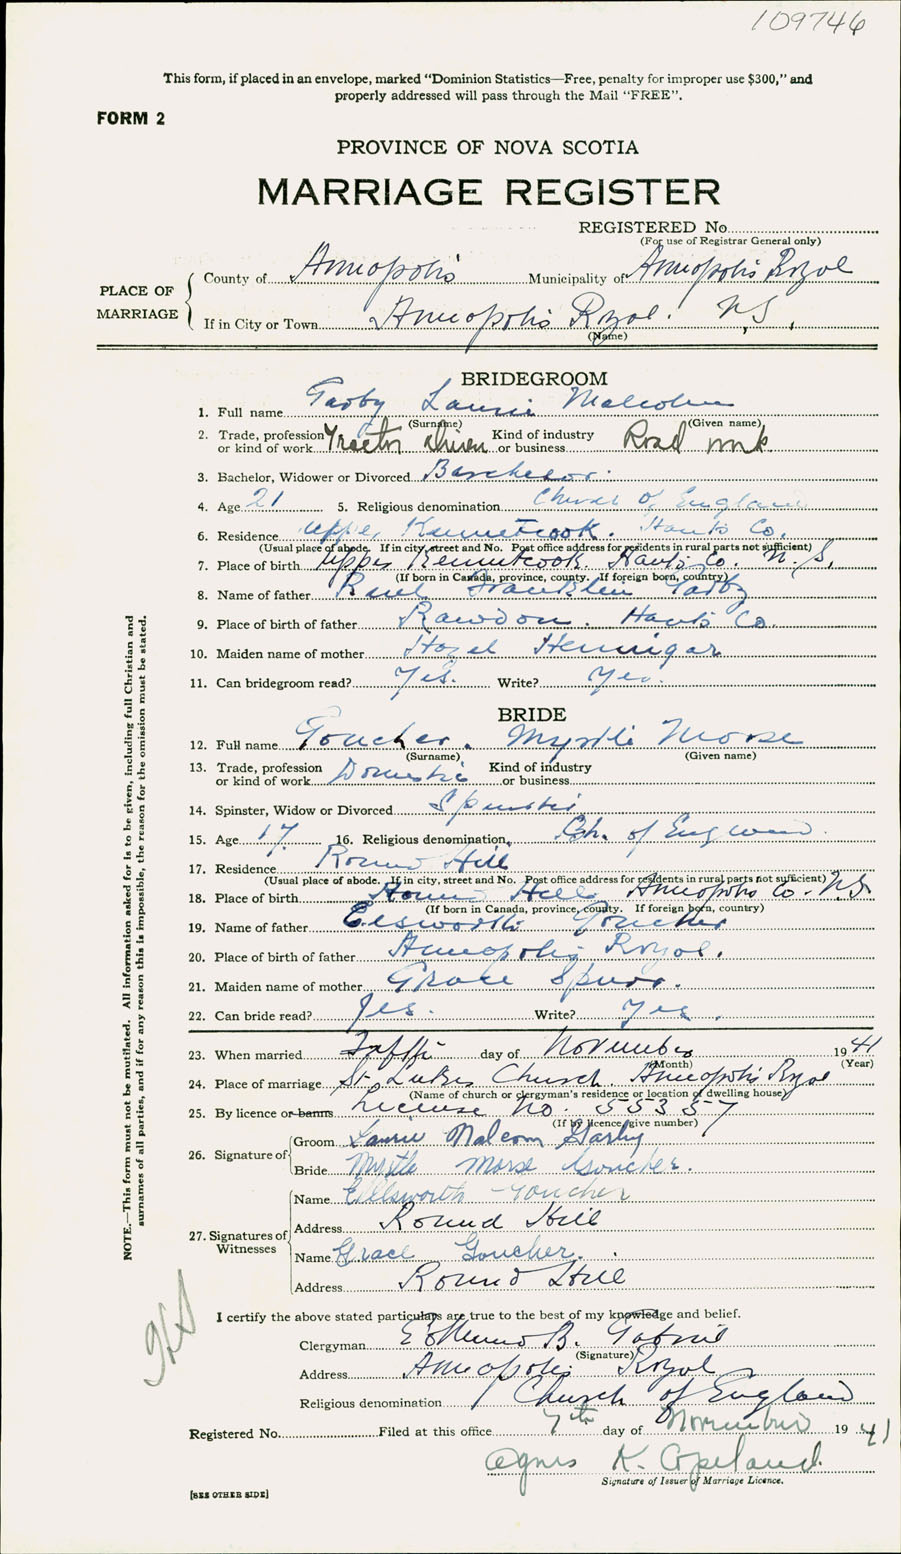 109746
This form, if placed in an envelope, marked “Dominion Statistics—Free, penalty for improper use $300,” and
properly addressed will pass through the Mail “FREE”.
FORM 2
PROVINCE OF NOVA SCOTIA
MARRIAGE REGISTER
REGISTERED No.
(For use of Registrar General only)
PLACE OF MARRIAGE
County of Annapolis Municipality of Annapolis Royal
If in City or Town Annapolis Royal. N.S.
(Name)
BRIDEGROOM
1. Full name Laurie Malcolm
(Surname) (Given name)
2. Trade, profession or kind of work Tractor driver Kind of industry or business Road work
3. Bachelor, Widower or Divorced Batchelor.
4. Age 21 5. Religious denomination Church of England
6. Residence Upper Kennetcook. Hants Co.
(Usual place of abode. If in city, street and No. Post office address for residents in rural parts not sufficient)
7. Place of birth Upper Kennetcook Hants Co. N.S.
(If born in Canada, province, county. If foreign born, country)
8. Name of father Franklin
9. Place of birth of father Rawdon. Hants Co.
10. Maiden name of mother Hazel Hennigar
11. Can bridegroom read? Yes. Write? Yes.
BRIDE
12. Full name Goucher. Myrtle Morse
(Surname) (Given name)
13. Trade, profession or kind of work Domestic Kind of industry or business
14. Spinster, Widow or Divorced Spinster
15. Age 17. 16. Religious denomination Ch. of England.
17. Residence Round Hill
(Usual place of abode. If in city, street and No. Post office address for residents in rural parts not sufficient)
18. Place of birth Round Hill Annapolis Co. N.S.
(If born in Canada, province, county. If foreign born, country)
19. Name of father Elsworth Goucher
20. Place of birth of father Annapolis Royal.
21. Maiden name of mother Grace Spurr.
22. Can bride read? Yes. Write? Yes.
23. When married day of November 1941
(Month) (Year)
24. Place of marriage St. Lukes Church. Annapolis Royal
(Name of church or clergyman's residence or location of dwelling house)
25. By licence or banns License No. 55357
(If by licence, give number)
26. Signature of Groom Laurie Malcom
Bride Myrtle Morse Goucher.
27. Signatures of Witnesses
Name Ellsworth Goucher
Address Round Hill
Name Grace Goucher.
Address Round Hill
I certify the above stated particulars are true to the best of my knowledge and belief.
Clergyman B.
(Signature)
Address Annapolis Royal
Religious denomination Church of England
Registered No. Filed at this office 7th day of November 1941
Agnes K. Copeland.
Signature of Issuer of Marriage Licence.
[SEE OTHER SIDE]
NOTE.—This form must not be mutilated. All information asked for is to be given, including full Christian and
surnames of all parties, and if for any reason this is impossible, the reason for the omission must be stated.